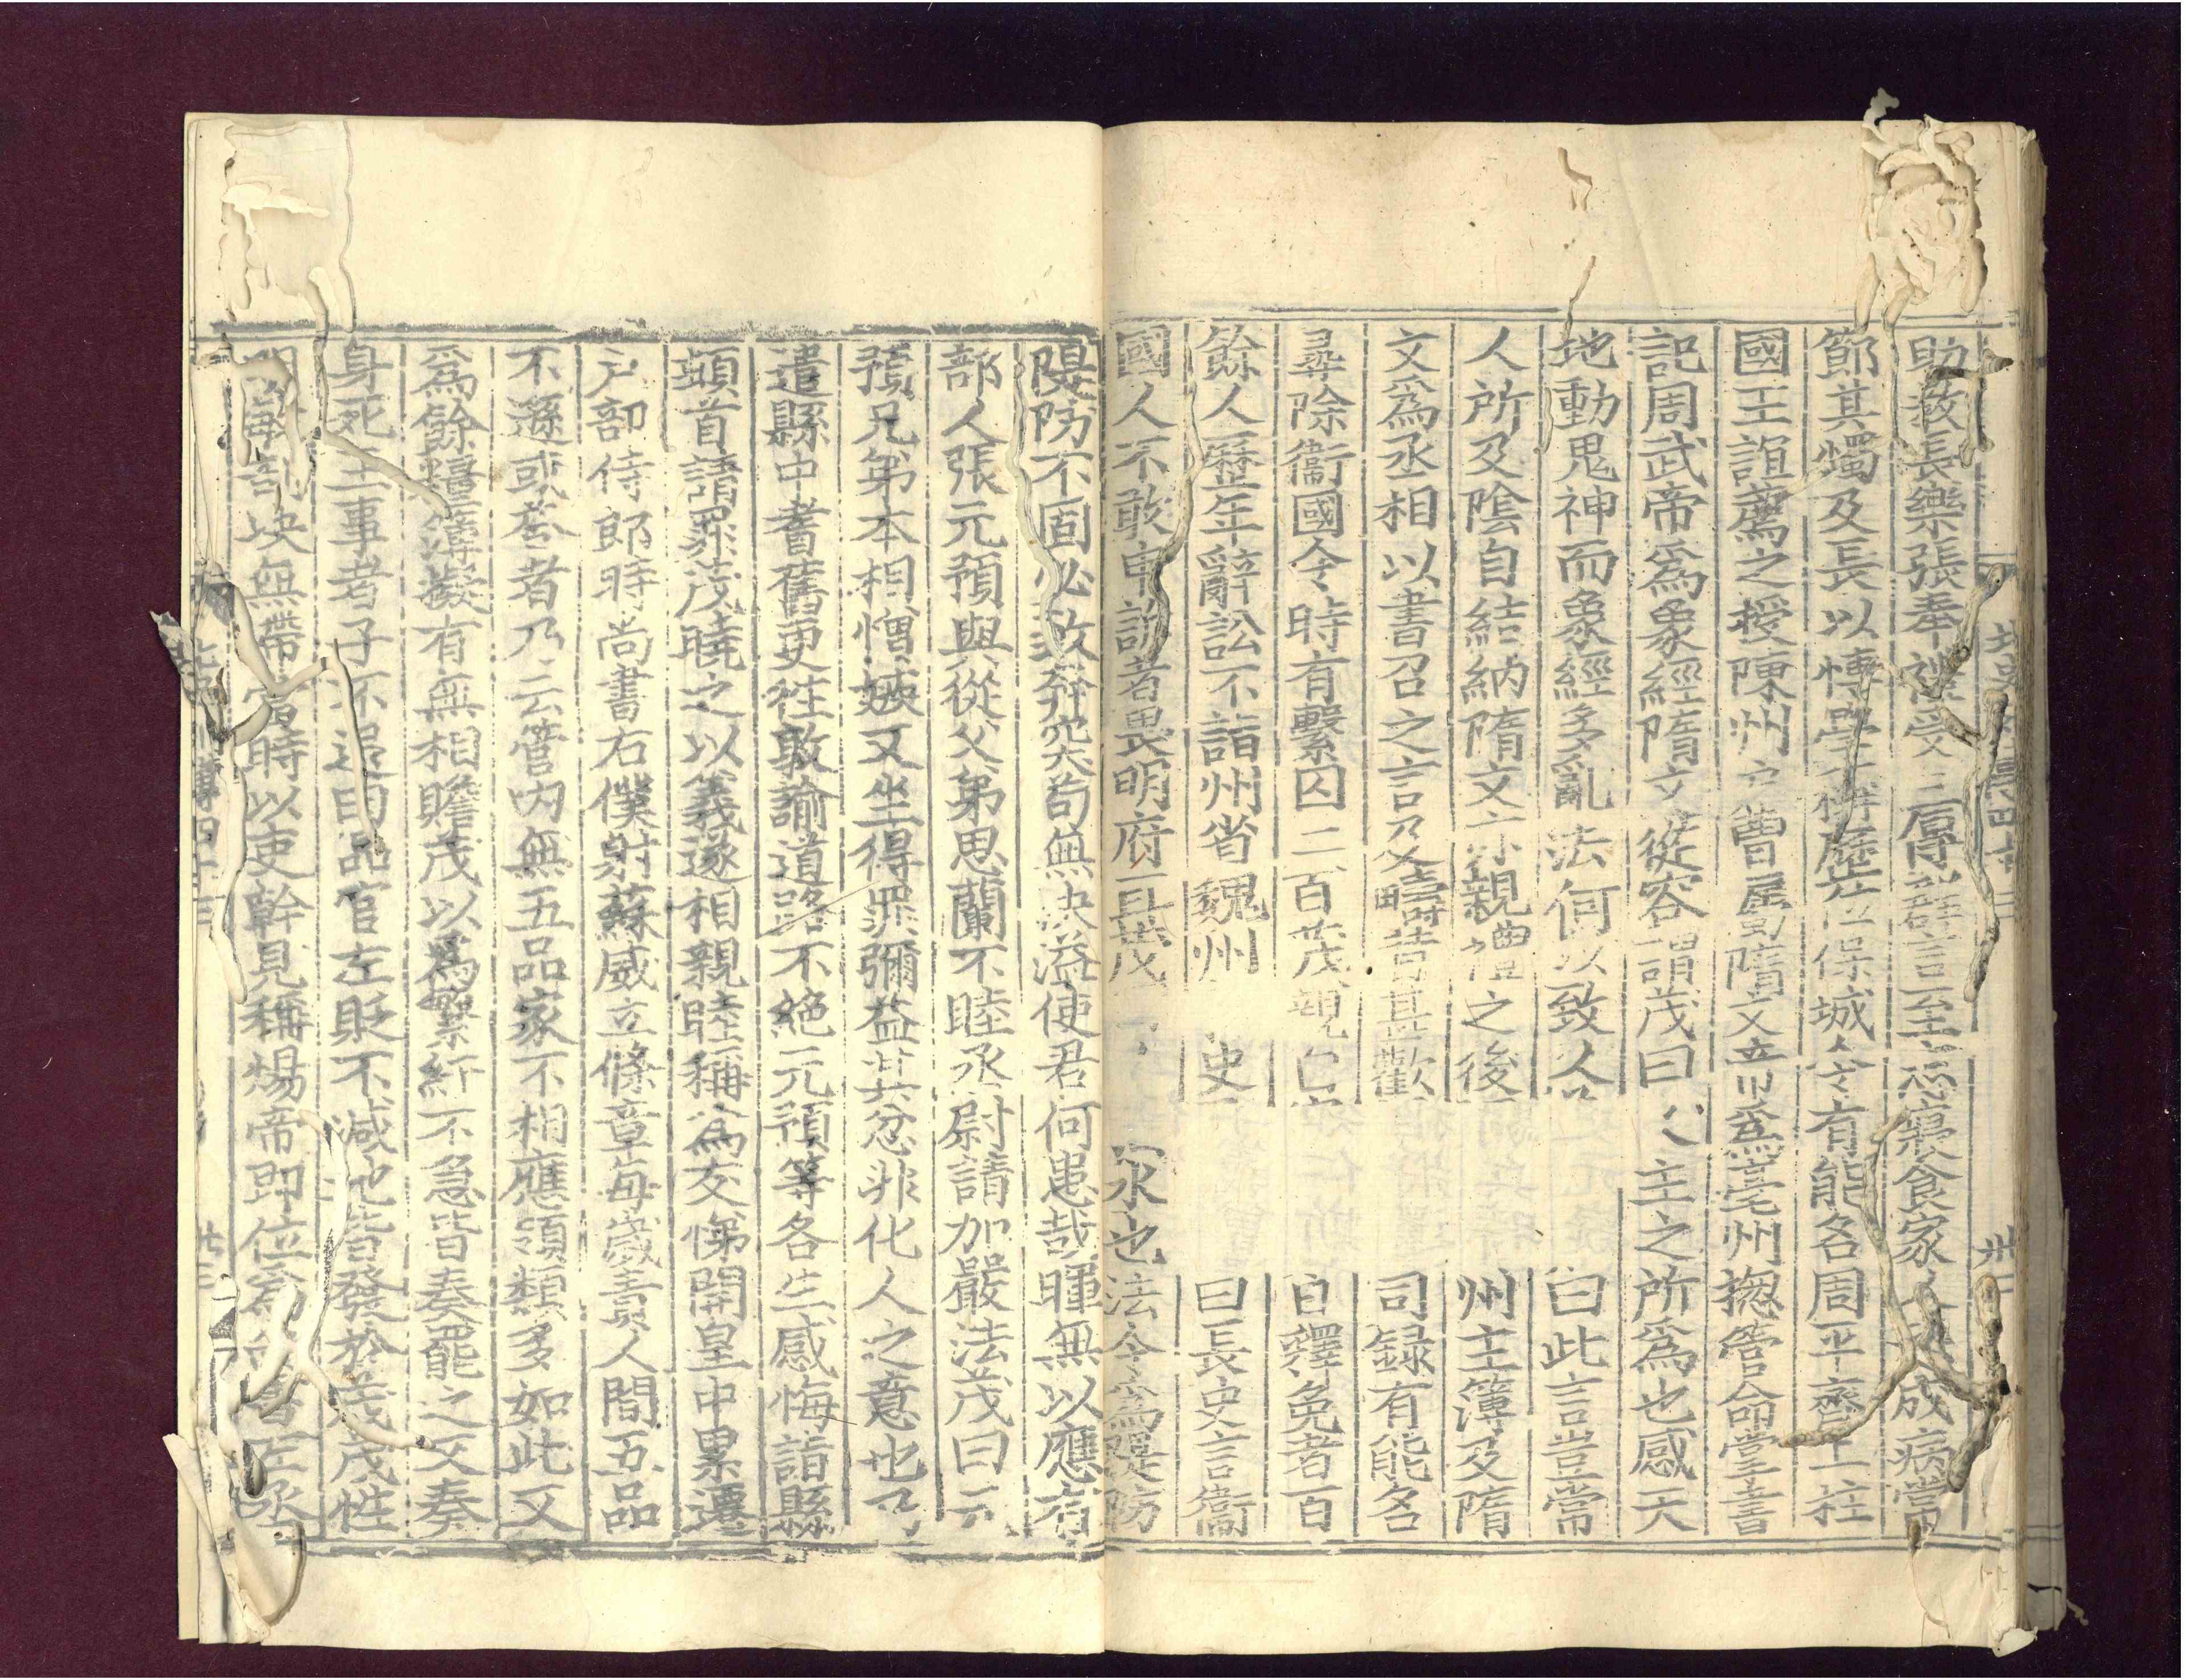 助教長樂張奉禮受三傳群言至忘寢食家人恐成病常
節其燭及長以博學稱歷位保城令有能名周平齊上柱
國王誼薦之授陳州戶曹屬隋文帝爲亳州揔管命掌書
記周武帝爲象經隋文從容謂茂曰人主之所爲也感天
地動鬼神而象經多亂法何以致人茂曰此言豈常
人所及陰自結納隋文亦親禮之後州主簿及隋
文爲丞相以書召之言及疇昔甚歡司録有能名
尋除衞國令時有繫囚二百茂親自釋免者百
餘人歷年辭訟不詣州省魏州史曰長史言衞
國人不敢申訴者畏明府耳茂水也法令爲隄防
隄防不固必致奔突苟無決溢使君何患哉暉無以應有
部人張元預與從父弟思蘭不睦丞尉請加嚴法茂曰元
預兄弟本相憎嫉又坐得罪彌益其忿非化人之意也乃
遣縣中耆舊更往敦諭道路不絶元預等各生感悔詣縣
頓首請罪茂曉之以義遂相親睦稱爲友悌開皇中累遷
户部侍郎時尚書右僕射蘇威立條章每歲責人間五品
不遜或荅者乃云管内無五品家不相應領類多如此又
爲餘糧簿擬有無相贍茂以爲繁紆不急皆奏罷之又奏
身死王事者子不退田品官左貶不減地皆發於茂茂性
明敏剖決無滯當時以吏幹見稱煬帝即位爲尚書左丞